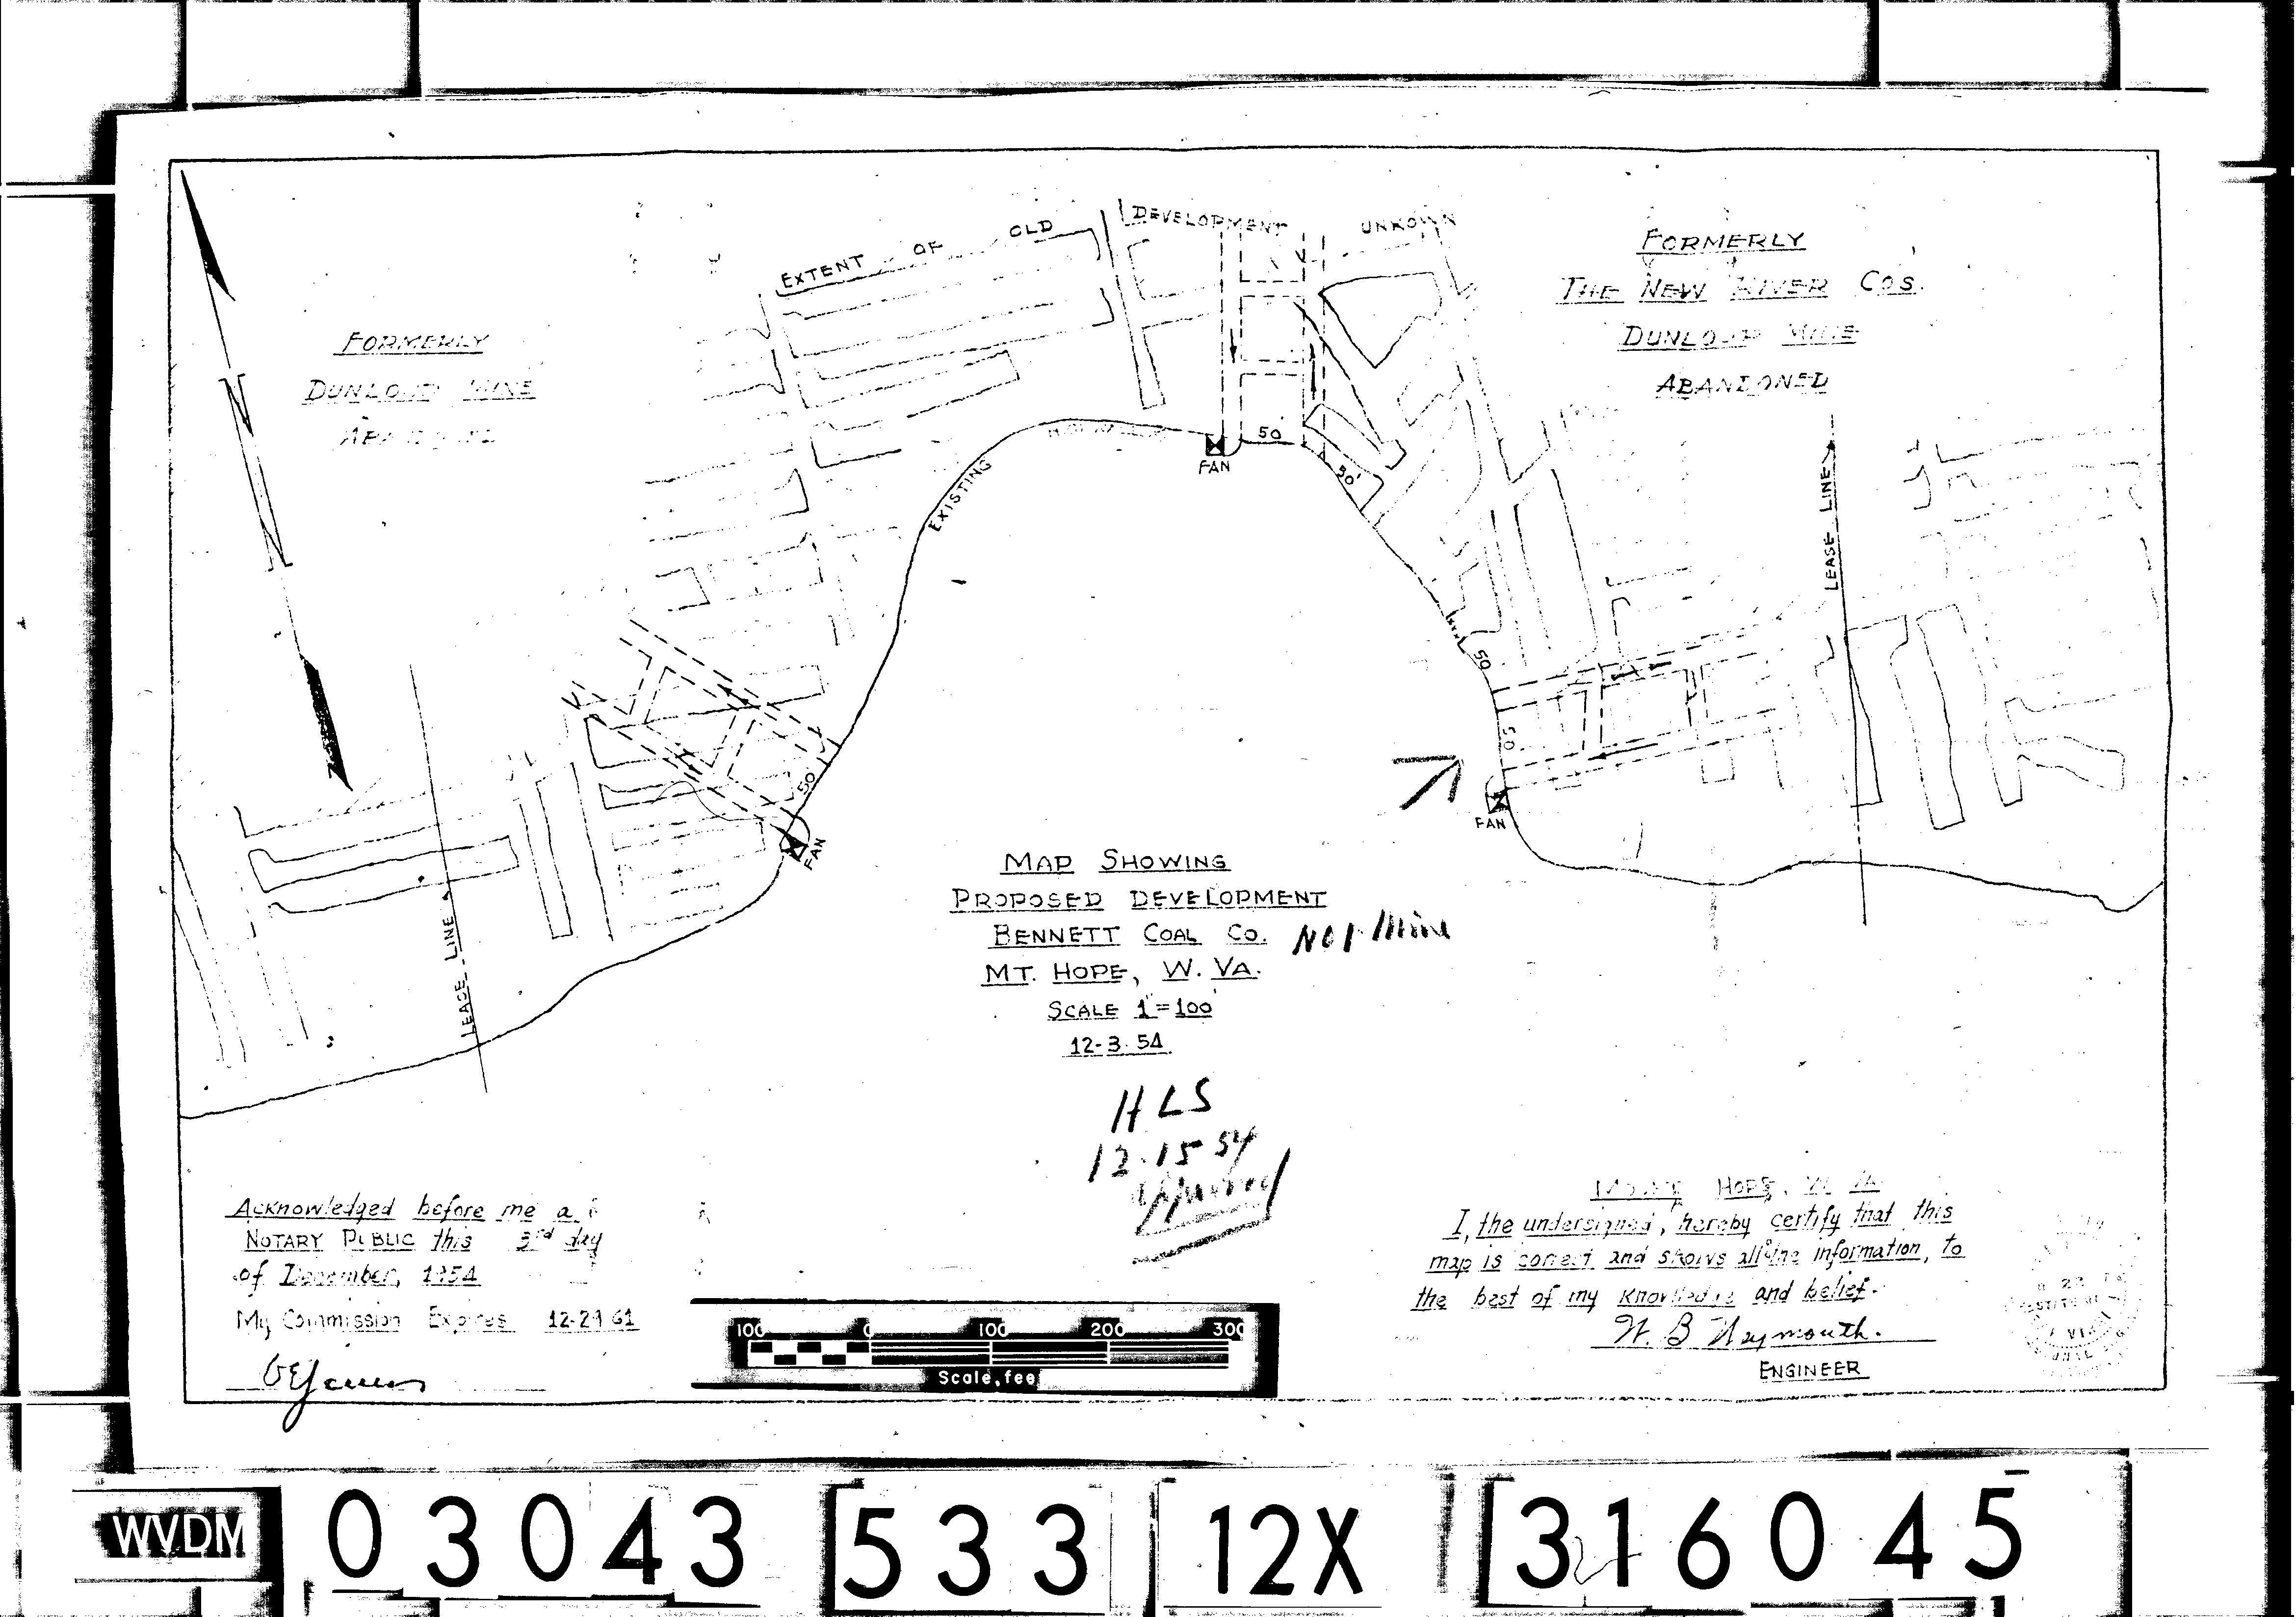 EXTENT OF OLD DEVELOPMENT UNKOWN
FORMERLY
DUNLOUP MINE
FORMERLY
THE NEW RIVER COS.
DUNLOUP MINE
ABANDONED
N
EXISTING
FAN
50
50'
50
50
FAN
50
FAN
LEASE LINE
LEASE LINE
MAP SHOWING
PROPOSED DEVELOPMENT
BENNETT COAL CO.
MT. HOPE, W. VA.
SCALE 1"=100'
12-3-54
HLS
12-15 54
approved
Acknowledged before me a
NOTARY PUBLIC this 3rd day
of December, 1954
My Commission Expires 12-29 61
MOUNT HOPE, W. VA.
I, the undersigned, hereby certify that this
map is correct and shows all the information, to
the best of my knowledge and belief.
W. B. Weymouth.
ENGINEER
100 0 100 200 300
Scale, fee
WVDM 03043 533 12X 316045